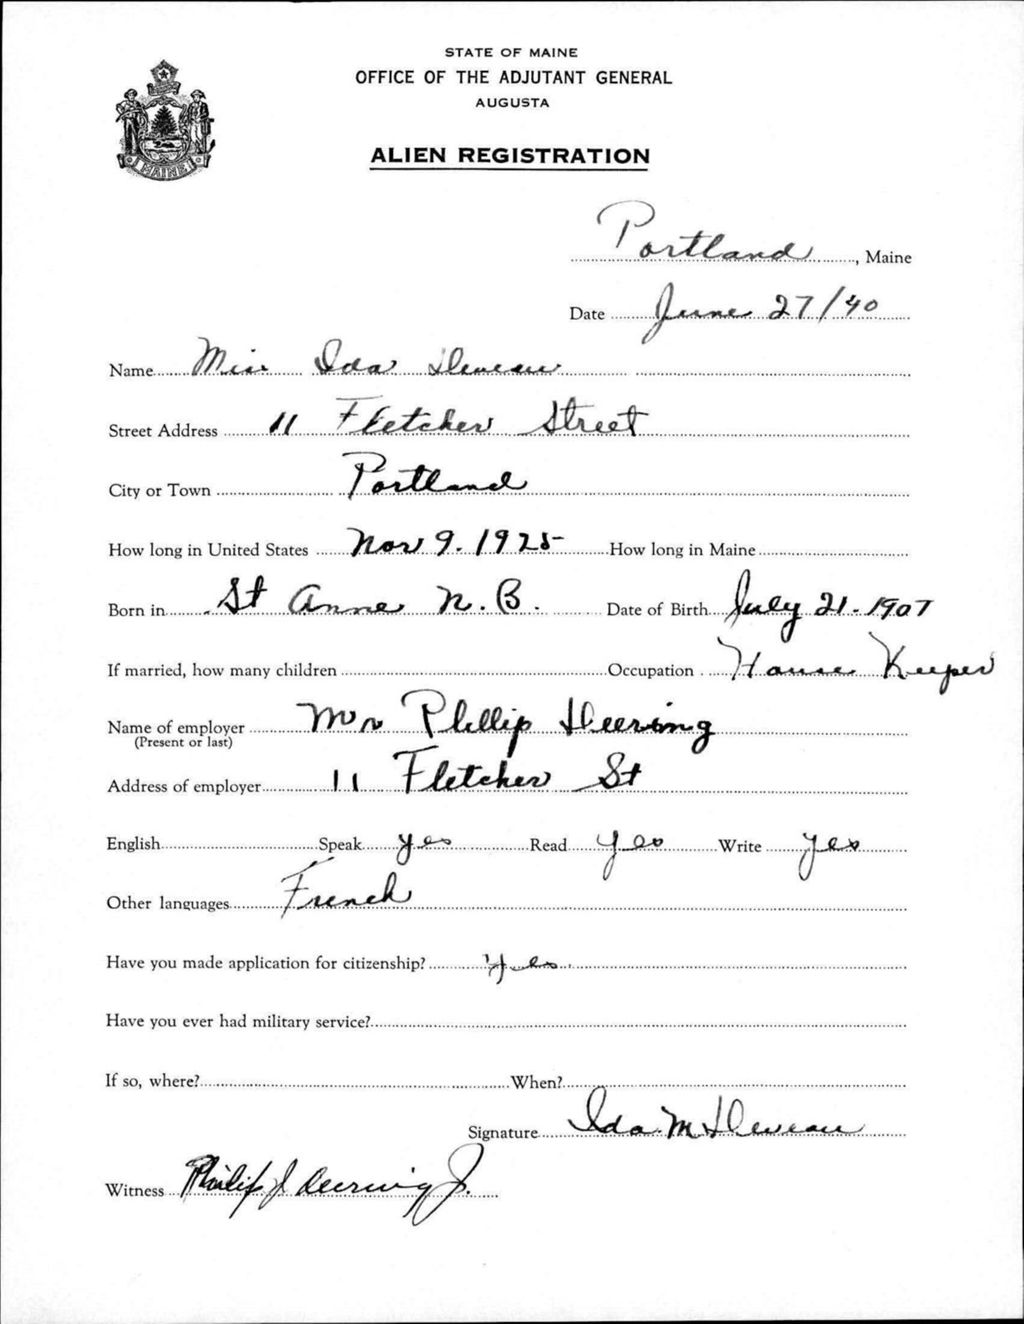 STATE OF MAINE
OFFICE OF THE ADJUTANT GENERAL
AUGUSTA
ALIEN REGISTRATION
MAINE
Portland, Maine
Date June 27/40
Name Miss Ida Deveau
Street Address 11 Fletcher Street
City or Town Portland
How long in United States Nov 9. 1925 How long in Maine
Born in St Anne N.B. Date of Birth July 21-1907
If married, how many children Occupation House Keeper
Name of employer Mr Phillip Deering
(Present or last)
Address of employer 11 Fletcher St
English Speak yes Read yes Write yes
Other languages French
Have you made application for citizenship? Yes
Have you ever had military service?
If so, where? When?
Signature Ida M Deveau
Witness Philip J Deering Jr.